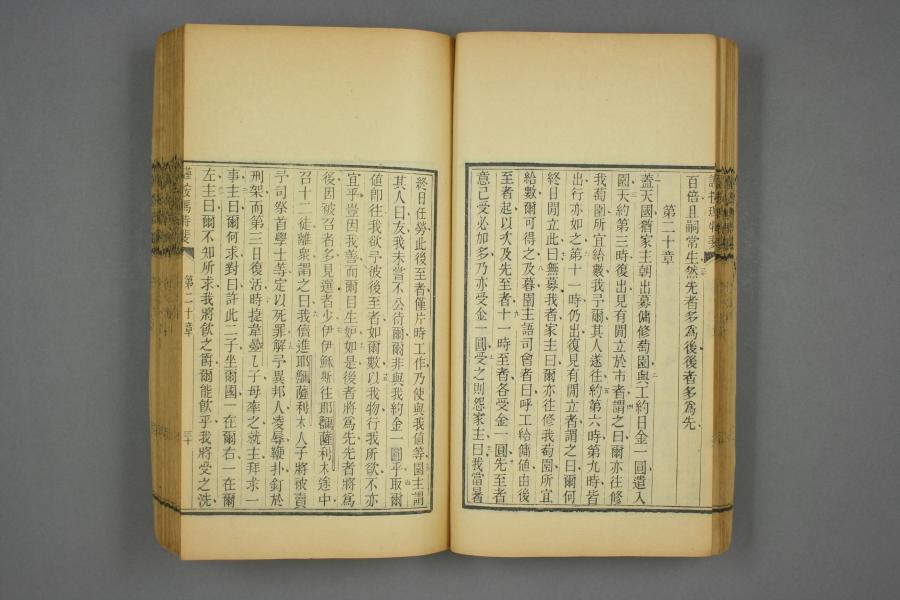 百倍且嗣常生然先者多為後後者多為先
第二十章
蓋天國猶家主朝出募傭修萄園與工約日金一圓遣入
園大約第三時復出見有閒立於市者謂之曰爾亦往修
我萄園所宜給數我予爾其人遂往約第六時第九時皆
出行亦如之第十一時仍出復見有閒立者謂之曰爾何
終日閒立此曰無募我者家主曰爾亦往修我萄園所宜
給數爾可得之及暮園主語司會者曰呼工給傭值由後
至者起以次及先至者十一時至者各受金一圓先至者
意己受必加多乃亦受金一圓受之則怨家主曰我當暑
終日任勞此後至者僅片時工作乃使與我值等園主謂
其人曰友我未嘗不公待爾爾非與我約金一圓乎取爾
值即往我欲予彼後至者如爾數以我物行我所欲不亦
宜乎豈因我善而爾目生妒如是後者將為先先者將為
後因被召者多見選者少伊伊穌斯往耶酃薩利木途中
召十二徒離衆謂之曰我儕進耶酃薩利木人子將被賣
予司祭首學士等定以死罪解予異邦人凌辱鞭扑釘於
刑架而第三日復活時捷韋
子母率之就主拜求一
事主曰爾何求對曰許此二子坐爾國一在爾右一在爾
左主曰爾不知所求我將飲之爵爾能飲乎我將受之洗
第二十章
三十